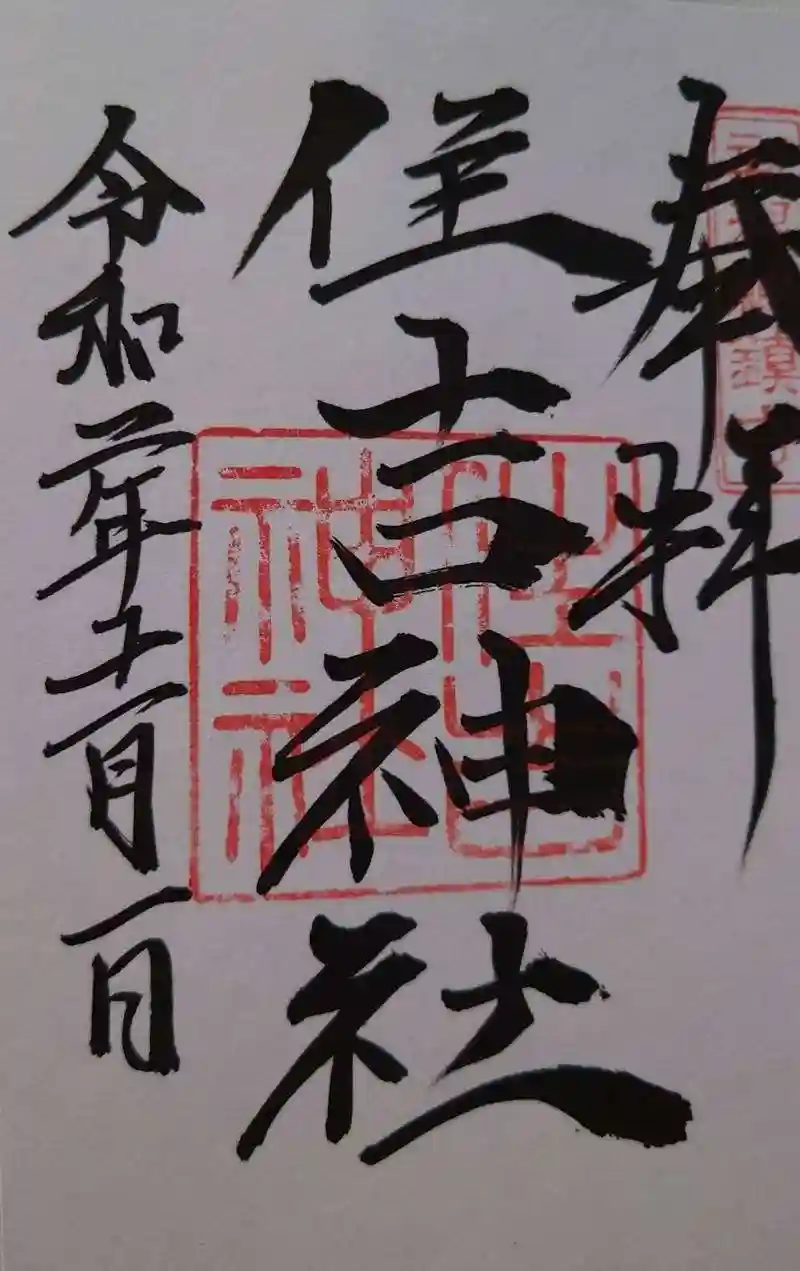 奉拝
住吉神社
住吉神社
令和二年十一月一日